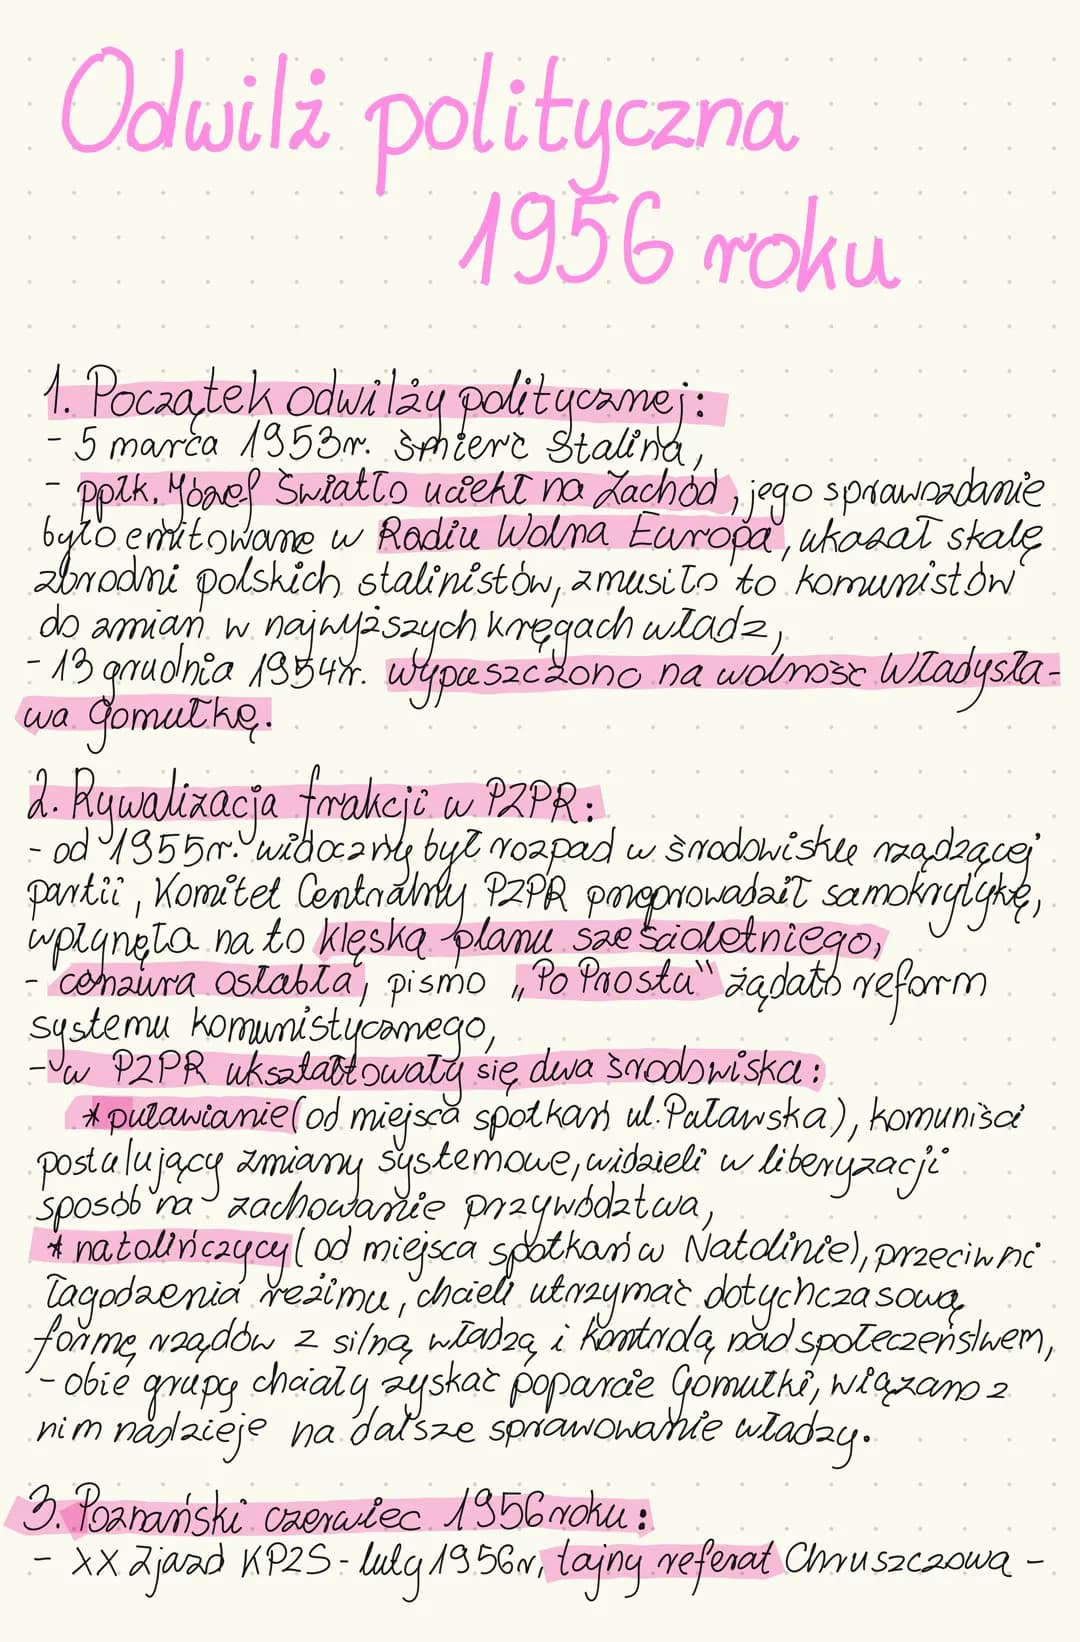 Odwilż polityczna
1956 roku
1. Początek odwilży politycznej:
- 5 marca 1953r. śmierć Stalina,
- ppłk. Józef Światło uciekł na Zachód, jego sprawozdanie
było emitowane w Radiu Wolna Europa, ukazał skalę
zbrodni polskich stalinistów, zmusiło to komunistów
do zmian w najwyższych kręgach władz,
- 13 grudnia 1954r. wypuszczono na wolność Władysła-
wa Gomułkę.
2. Rywalizacja frakcji w PZPR:
- od 1955r. widoczny był rozpad w środowisku rządzącej
partii, Komitet Centralny PZPR przeprowadził samokrytykę,
wpłynęła na to klęska planu sześcioletniego,
- cenzura osłabła, pismo „Po Prostu" żądało reform
systemu komunistycznego,
- w PZPR ukształtowały się dwa środowiska:
* puławianie (od miejsca spotkań ul. Puławska), komuniści
postulujący zmiany systemowe, widzieli w liberyzacji
sposób na zachowanie przywództwa,
* natolińczycy (od miejsca spotkań w Natolinie), przeciwni
łagodzenia reżimu, chcieli utrzymać dotychczasową
formę rządów z silną władzą i kontrolą nad społeczeństwem,
- obie grupy chciały zyskać poparcie Gomułki, wiązano z
nim nadzieje na dalsze sprawowanie władzy.
3. Poznański czerwiec 1956 roku:
- XX Zjazd KPZS - luty 1956r, tajny referat Chruszczowa -